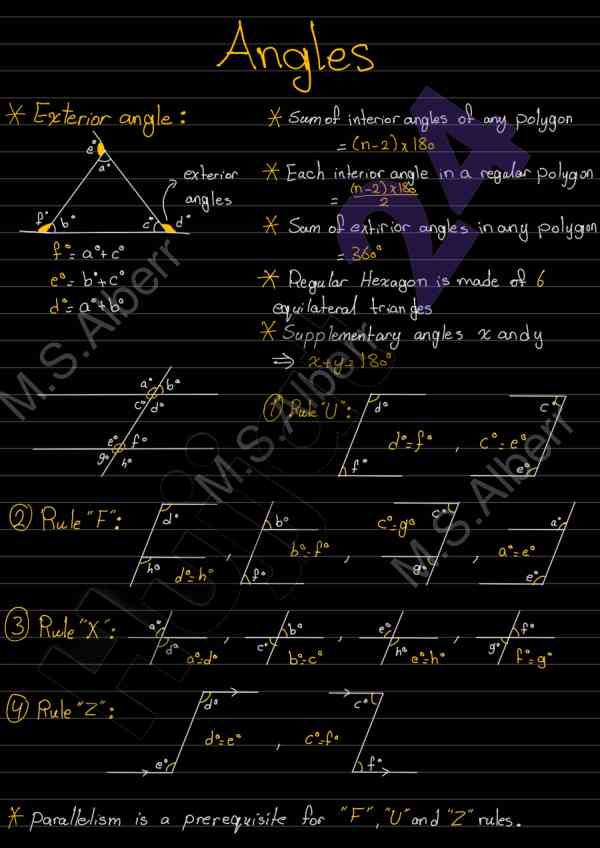 Angles
* Exterior angle:
e°
a°
exterior
angles
f° b° c° d°
f° = a°+c°
e° = b°+c°
d° = a°+b°
* Sum of interior angles of any polygon
= (n-2) x 180
* Each interior angle in a regular polygon
= (n-2) x 180
2
* Sum of extirior angles in any polygon
= 360°
* Regular Hexagon is made of 6
equilateral triangles
* Supplementary angles x and y
⇒ x+y=180°
a° b°
c° d°
e° f°
g° h°
① Rule "U":
d°
f°
d°=f° , c°=e°
c°
e°
② Rule "F":
d°
h°
d°=h° ,
b°
f°
b°=f° ,
c°
g°
c°=g° ,
a°
e°
a°=e°
③ Rule "X":
a°
d°
a°=d° ,
b°
c°
b°=c° ,
e°
h°
e°=h° ,
f°
g°
f°=g°
④ Rule "Z":
d°
e°
d°=e° , c°=f°
c°
f°
* Parallelism is a prerequisite for "F", "U" and "Z" rules.
M.S.Alberr
M.S.Alberr
M.S.Alberr
24